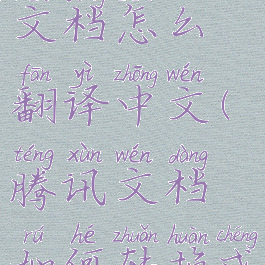 文档怎么
fān yì zhōng wén
翻译中文(
téng xùn wén dàng
腾讯文档
rú hé zhuǎn huàn chéng
如何转换成